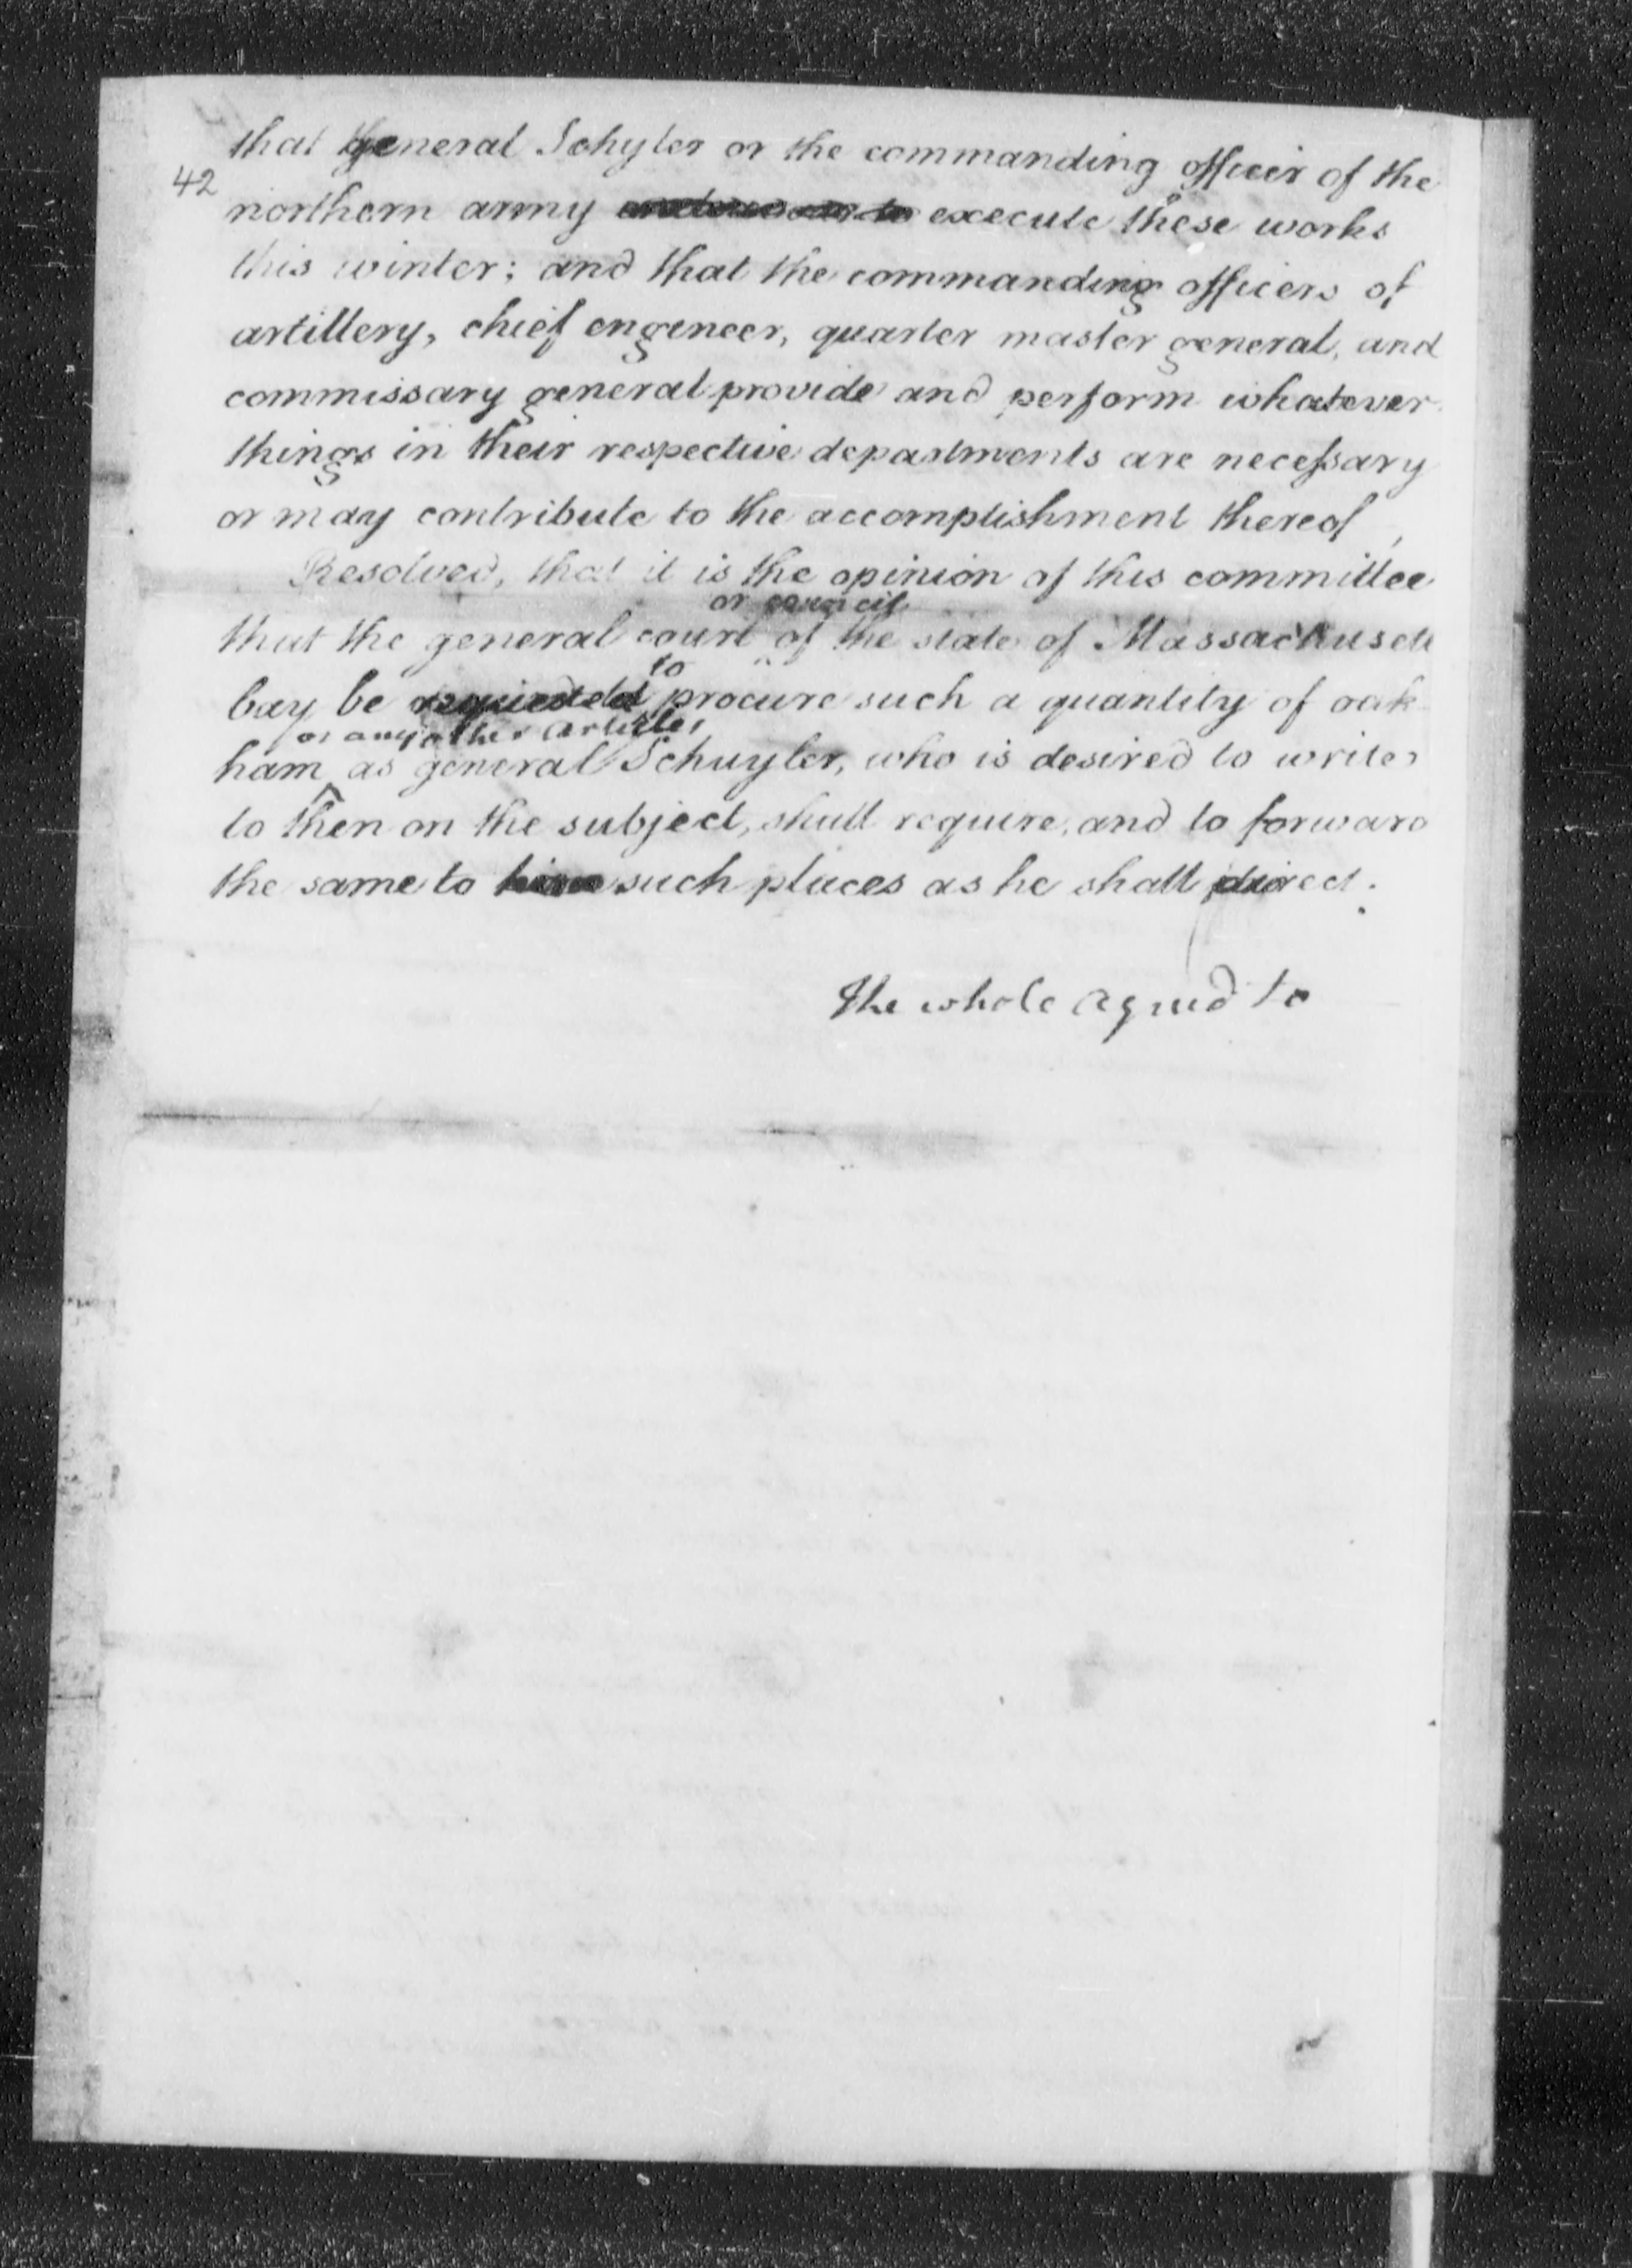 that general Schyler or the commanding officer of the
42
northern army execute these works
this winter; and that the commanding officers of
artillery, chief engeneer, quarter master general, and
commissary general provide and perform whatever
things in their respective departments are necessary
or may contribute to the accomplishment thereof,
Resolved, that it is the opinion of this committee
or council
that the general court of the state of Massachusett
to
bay be requested procure such a quantity of oak
or any other Articles
ham as general Schuyler, who is desired to write
to them on the subject, shall require, and to forward
the same to such places as he shall direct.
The whole agreed to